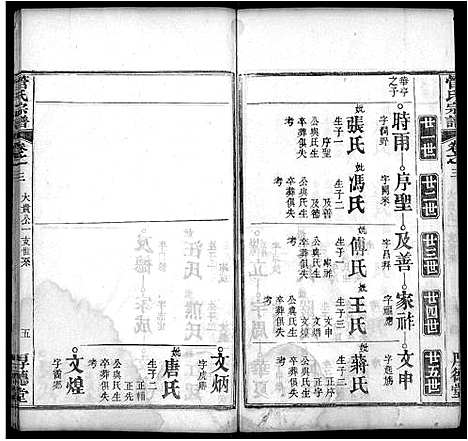 管氏宗譜
卷之三
廿一世
廿二世
廿三世
廿四世
廿五世
厚德堂
華亭之子
時雨
字潤野
妣張氏
生子一
序聖
公與氏生卒葬俱失考
序聖
字開來
妣馮氏
生子二
及善
及德
公與氏生卒葬俱失考
及善
字昌拜
妣傅氏
生子一
家祚
公與氏生卒葬俱失考
家祚
妣王氏
生子三
文申
文炳
文煌
公與氏生卒葬俱失考
文申
妣蔣氏
生子二
正字
公與氏生卒葬俱失考
文炳
妣唐氏
生子二
正楠
正先
公與氏生卒葬俱失考
文煌
管氏宗譜
卷之三
大貴公一支世系
五
厚德堂